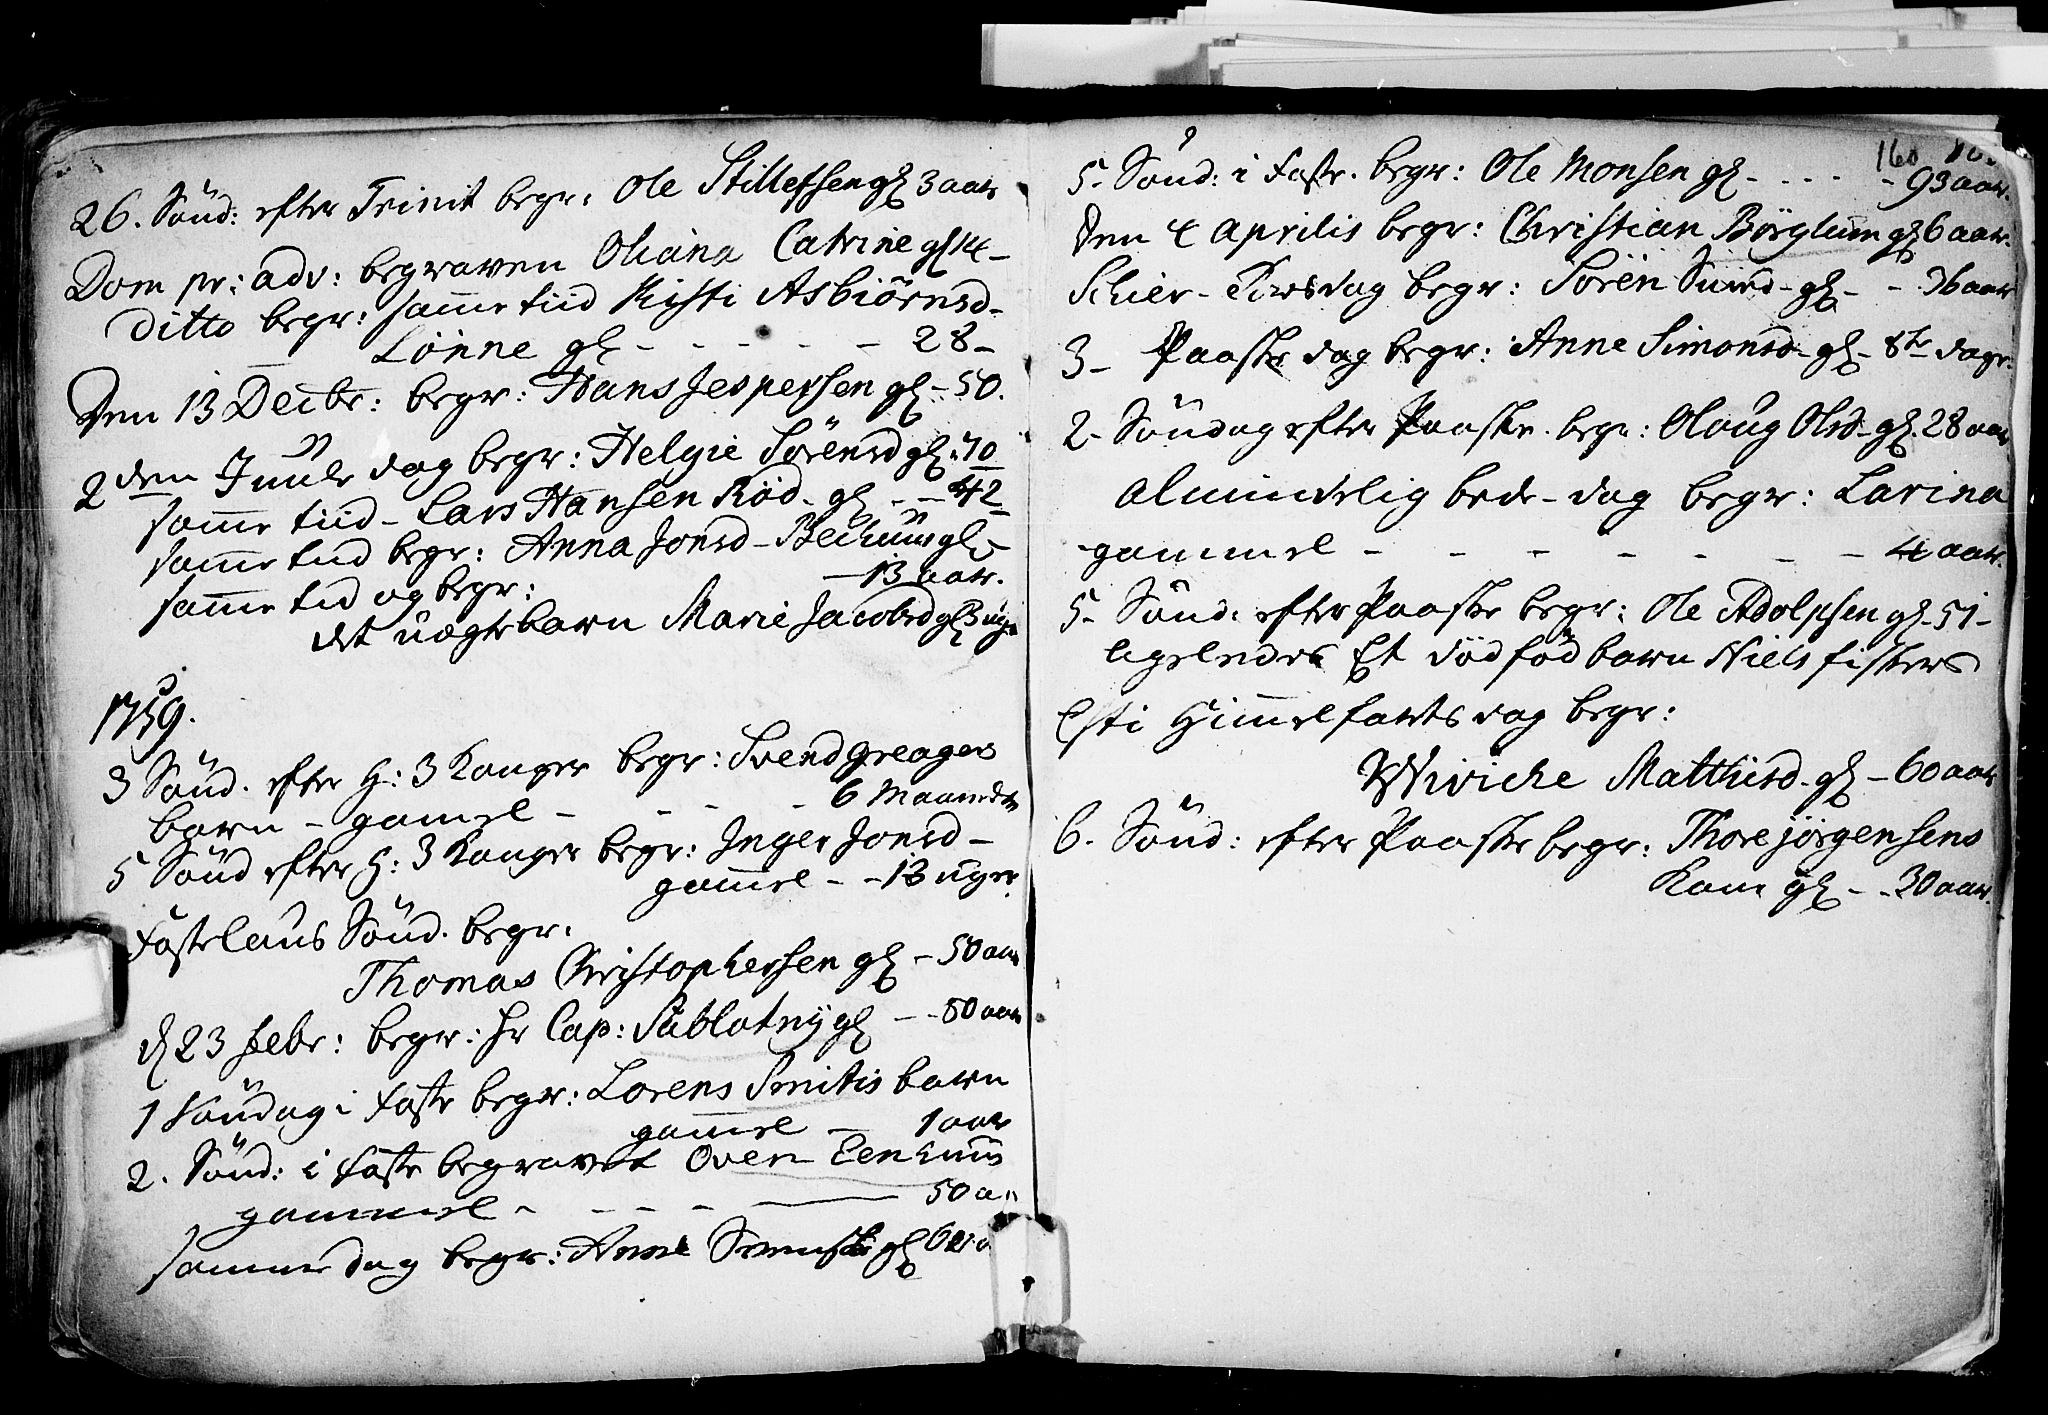 26. Sönd: efter Trinit begr: Ole Stillefsen gl 3 aar
Dom pr: adv: begraven Oliana Catrine gl 14 -
Ditto begr: samme tiid Kisti Asbiörnsd -
Lönne gl - - - - - 28 -
Den 13 Decbr: begr: Hans Jespersen gl - 50.
2den Juule dag begr: Helgie Sörensd gl - 70
samme tiid - Lars Hansen Röd - gl - - 42
samme tiid begr: Anna Jonsd - gl -
- 13 aar.
samme tid og begr:
det uægte barn Marie Jacobsd gl 3 uger
1759.
3 Sönd. efter H: 3 Konger begr: Svend Greagers
barn - gamel - - - - 6 Maaneder
5 Sönd efter H: 3 Konger begr: Inger Jonsd -
gammel - - 13 uger
Fastelaus Sönd. begr.
Thomas Christophersen gl - 50 aar
d 23 Febr: begr: Hr Cap: Sablotny gl - - 80 aar
1 Söndag i Faste begr: Lorens Smitis barn
gammel - 1 aar
2. Sönd: i Faste begravet Oven
gammel - - - - 50 a
samme dag begr: Anne gl
160
5- Sönd: i Faste. begr: Ole Monsen gl - - - - - 93 aar.
Den 4 Aprilis begr: Christian Börglum gl 6 aar.
Schier - Torsdag begr: Sören - gl - - 36 aar
3 - Paaske dag begr: Anne Simonsd - gl - 8te dage.
2 - Söndag efter Paaske. begr: Oloug Olsd - gl. 28 aar
Almindelig bede - dag begr: Larina
gammel - - - - - - - 4 aar.
5 - Sönd: efter Paaske begr: Ole Adolphsen gl - 51 -
ligeledes Et död född barn Niels fiskers
Christi Himmelfarts dag begr:
Wiviche Matthisd - gl - 60 aar
6. Sönd: efter Paaske begr: Thore Jörgensens
Kone gl - - 30 aar.